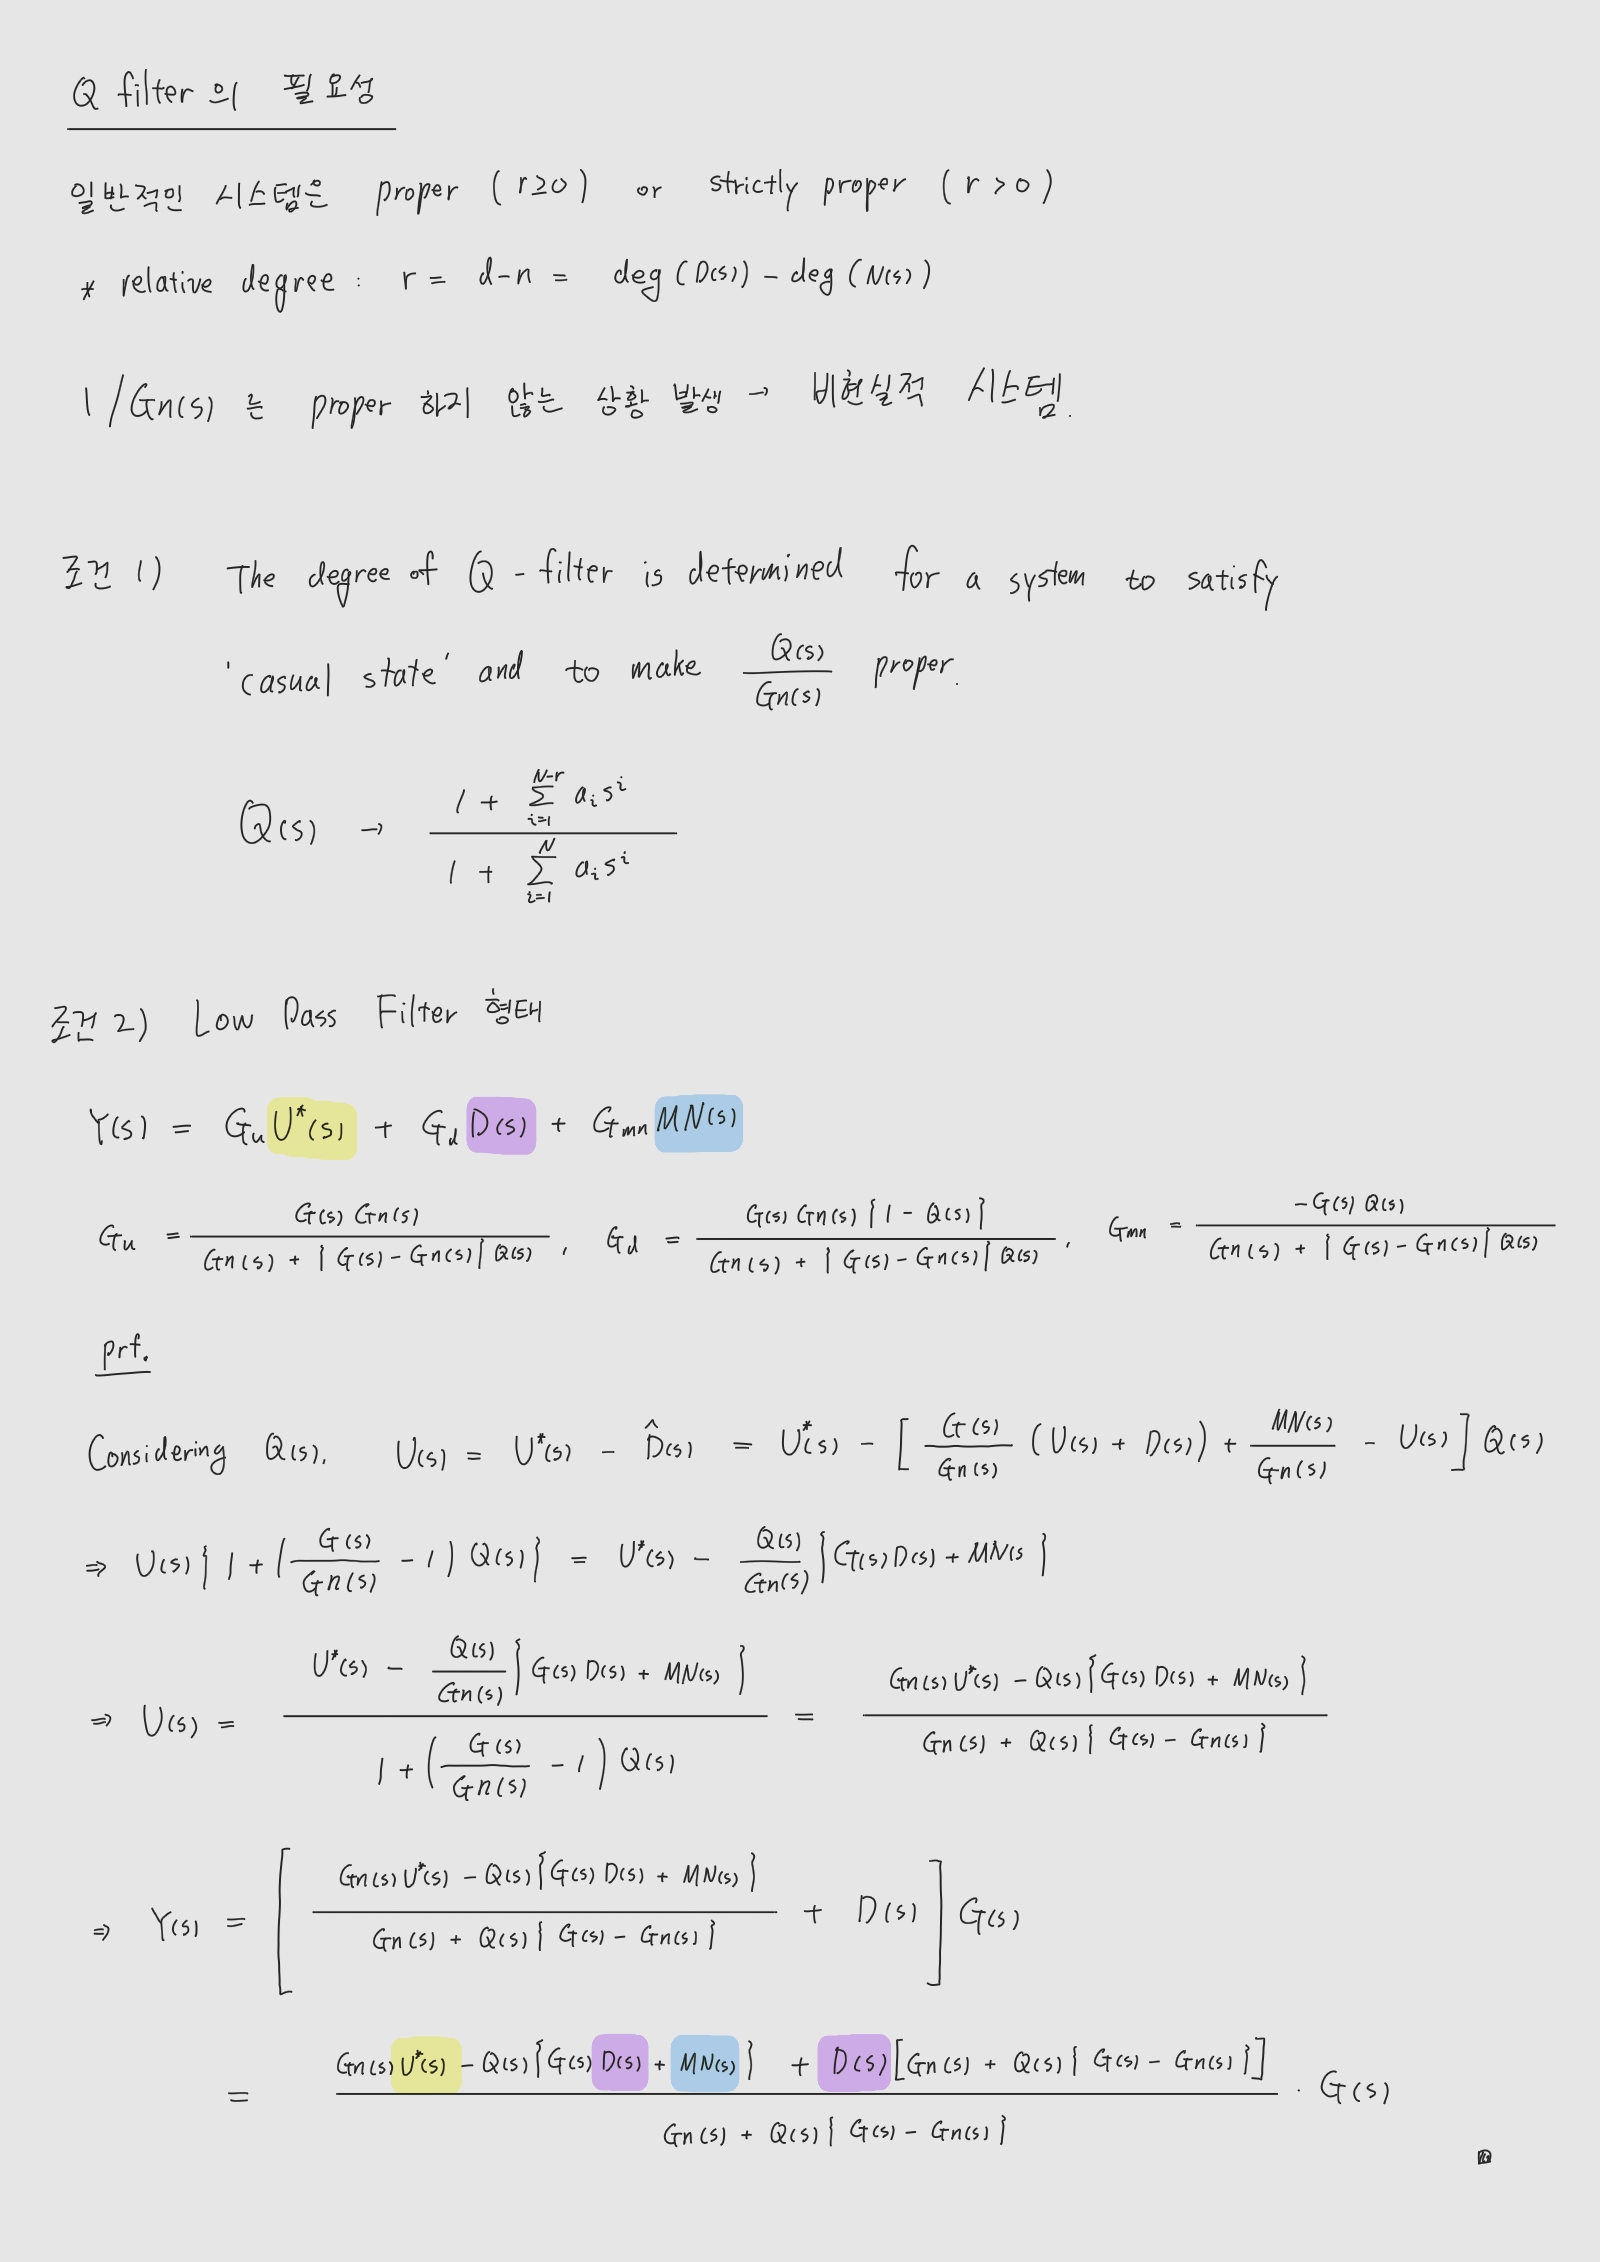 Q filter 의 필요성
일반적인 시스템은 proper ( r≥0 ) or strictly proper ( r > 0 )
* relative degree : r = d-n = deg (D(s)) - deg (N(s))
1/Gn(s) 는 proper 하지 않는 상황 발생 → 비현실적 시스템.
조건 1) The degree of Q - filter is determined for a system to satisfy
'casual state' and to make Q(s)/Gn(s) proper.
Q(s) → (1 + Σ_{i=1}^{N-r} a_i s^i) / (1 + Σ_{i=1}^{N} a_i s^i)
조건 2) Low Pass Filter 형태
Y(s) = G_u U*(s) + G_d D(s) + G_mn MN(s)
G_u = G(s) Gn(s) / (Gn(s) + {G(s) - Gn(s)} Q(s)) , G_d = G(s) Gn(s) {1 - Q(s)} / (Gn(s) + {G(s) - Gn(s)} Q(s)) , G_mn = -G(s) Q(s) / (Gn(s) + {G(s) - Gn(s)} Q(s))
prf.
Considering Q(s), U(s) = U*(s) - D̂(s) = U*(s) - [ G(s)/Gn(s) (U(s) + D(s)) + MN(s)/Gn(s) - U(s) ] Q(s)
⇒ U(s) { 1 + ( G(s)/Gn(s) - 1 ) Q(s) } = U*(s) - Q(s)/Gn(s) { G(s) D(s) + MN(s }
⇒ U(s) = ( U*(s) - Q(s)/Gn(s) { G(s) D(s) + MN(s) } ) / ( 1 + ( G(s)/Gn(s) - 1 ) Q(s) ) = ( Gn(s) U*(s) - Q(s) { G(s) D(s) + MN(s) } ) / ( Gn(s) + Q(s) { G(s) - Gn(s) } )
⇒ Y(s) = [ ( Gn(s) U*(s) - Q(s) { G(s) D(s) + MN(s) } ) / ( Gn(s) + Q(s) { G(s) - Gn(s) } ) + D(s) ] G(s)
= ( Gn(s) U*(s) - Q(s) { G(s) D(s) + MN(s) } + D(s) [ Gn(s) + Q(s) { G(s) - Gn(s) } ] ) / ( Gn(s) + Q(s) { G(s) - Gn(s) } ) · G(s)